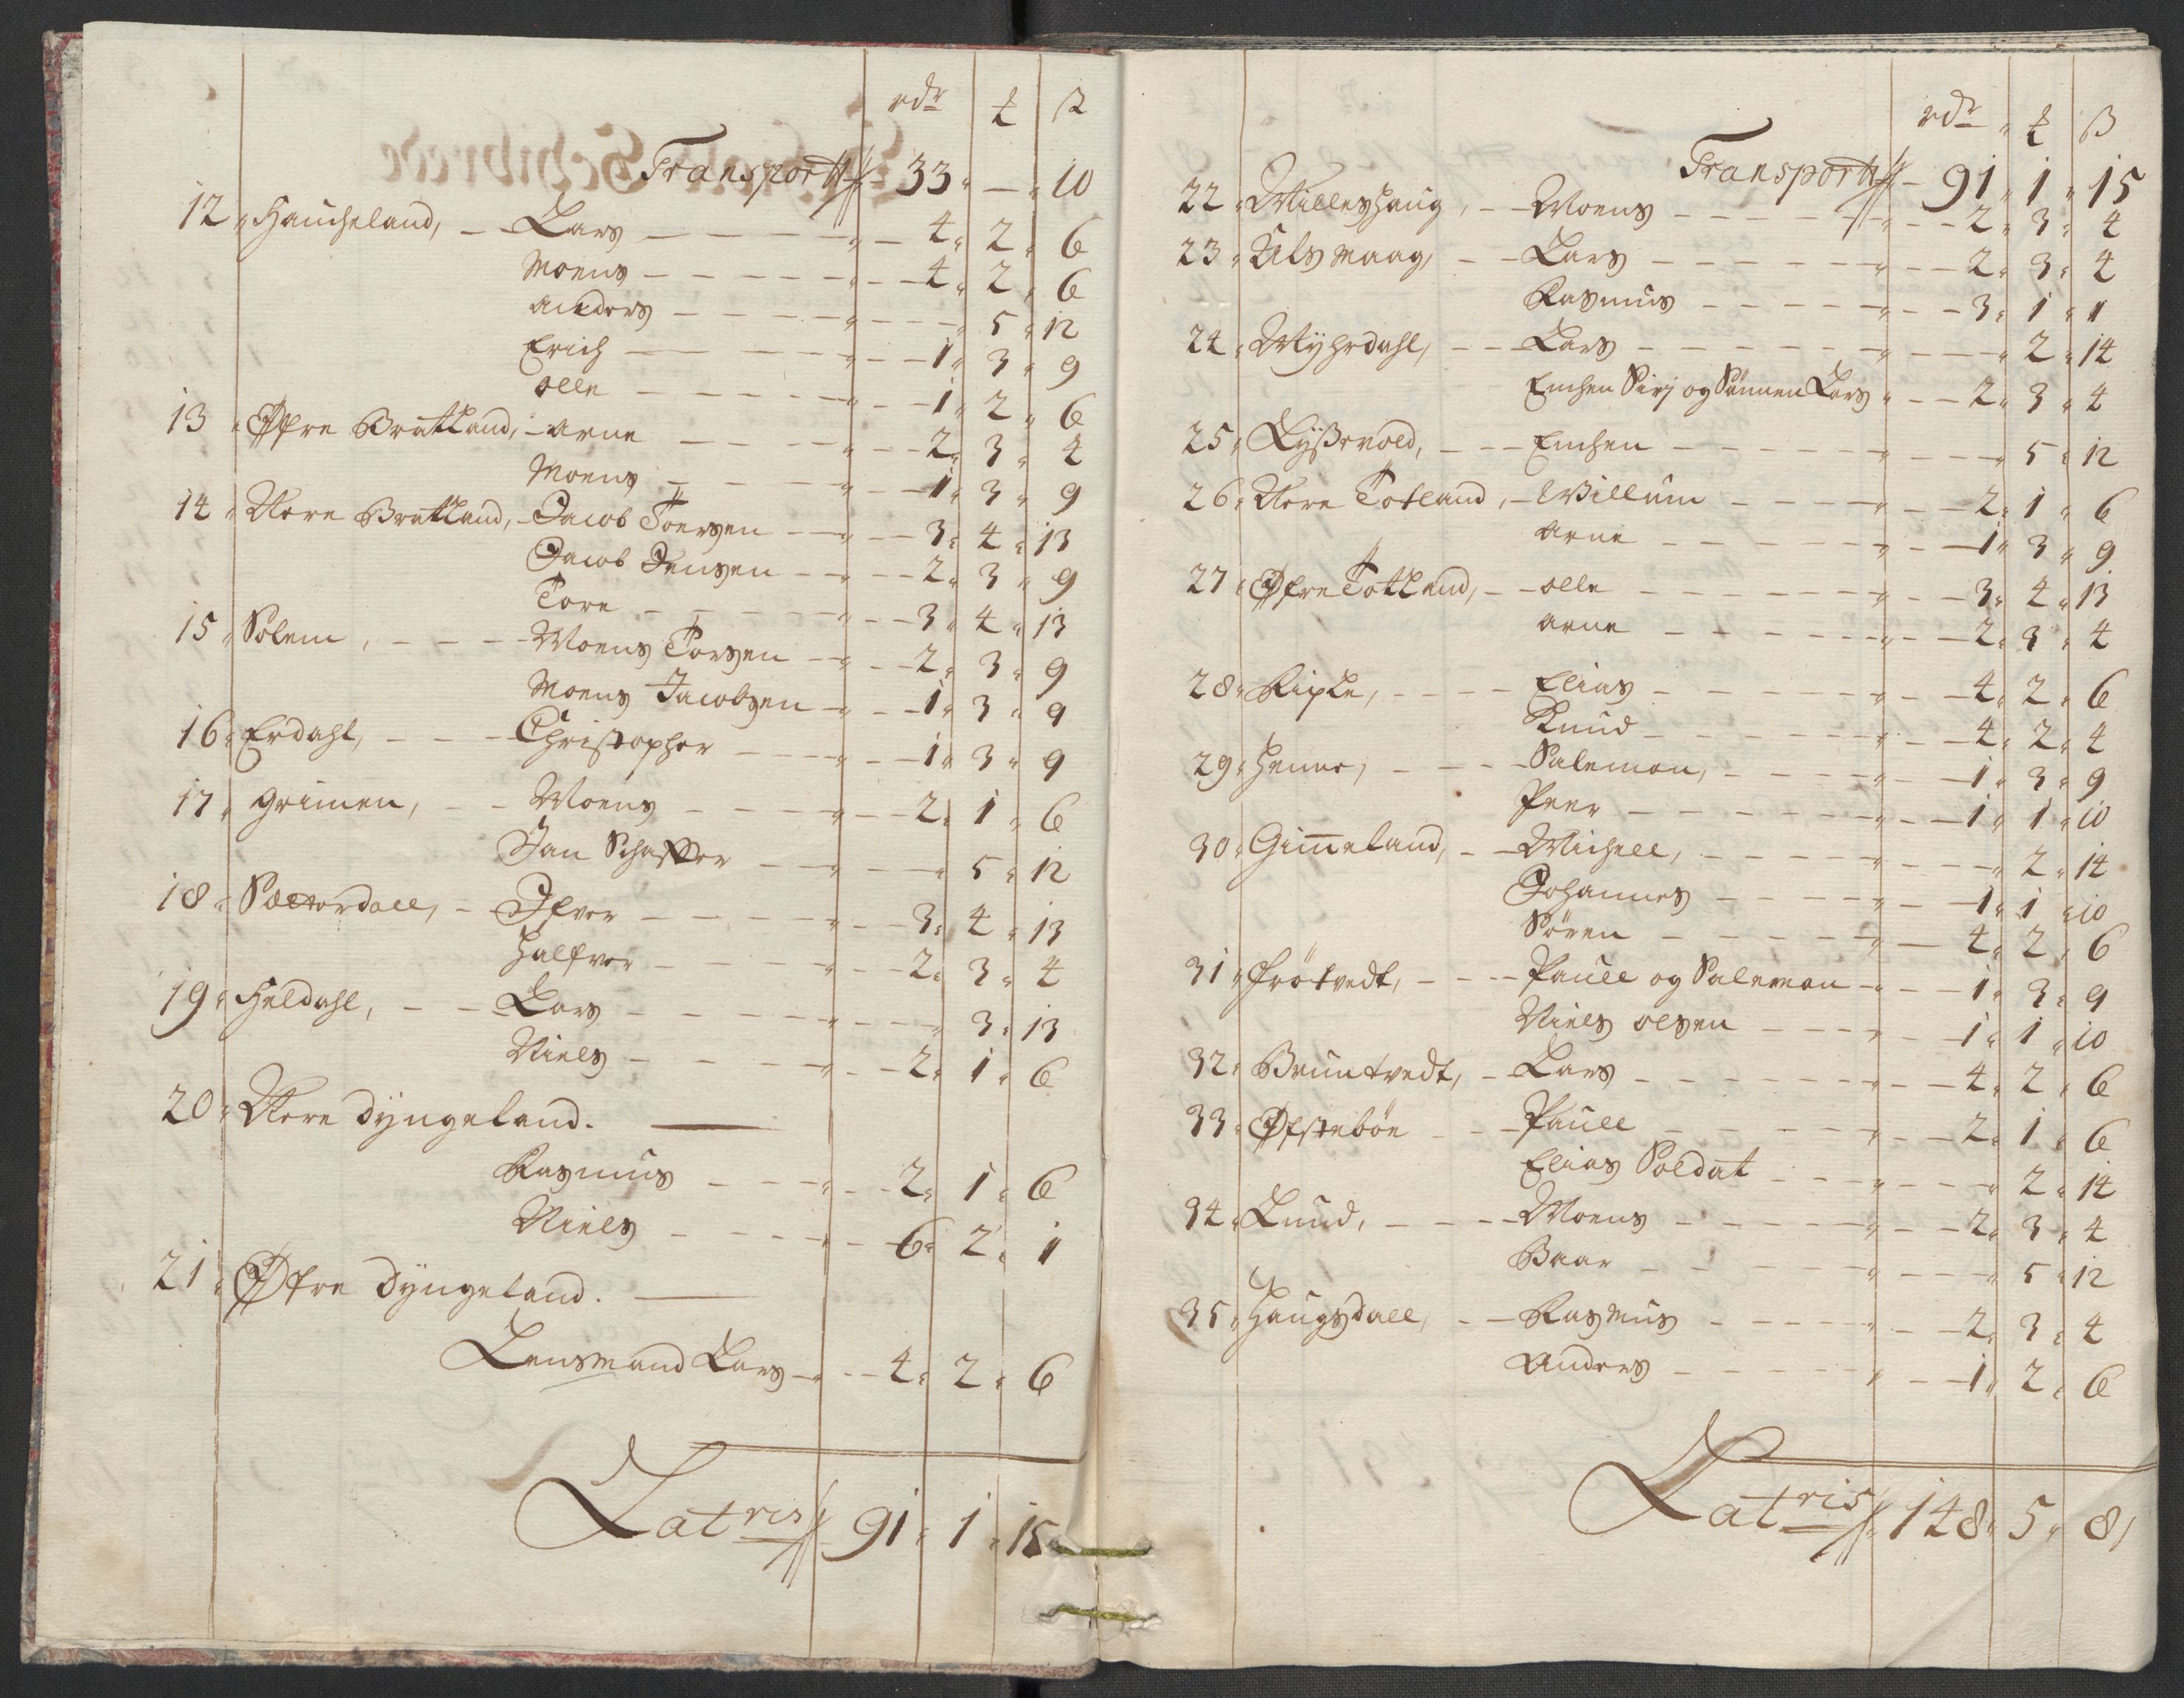 rdr ₰ ß
Transport 33 " — " 10
12 " Haucheland, Lars 4 " 2 " 6
Moens 4 " 2 " 6
Anders 5 " 12
Erich 1 " 3 " 9
Olle 1 " 2 " 6
13 " Øfre Bratland, Arne 2 " 3 " 4
Moens 1 " 3 " 9
14 " Nere Bratland, Jacob Toersen 3 " 4 " 13
Jacob Jensen 2 " 3 " 9
Tore 3 " 4 " 13
15 " Solem, Moens Torsen 2 " 3 " 9
Moens Jacobsen 1 " 3 " 9
16 " Erdahl, Christopher 1 " 3 " 9
17 " Grimen, Moens 2 " 1 " 6
Jan 5 " 12
18 " Sætterdall, Ifver 3 " 4 " 13
Halfvor 2 " 3 " 4
19 " Heldahl, Lars 3 " 13
Niels 2 " 1 " 6
20 " Nere Dÿngeland.
Rasmus 2 " 1 " 6
Niels 6 " 2 " 1
21 " Øfre Dÿngeland.
Lensmand Lars 4 " 2 " 6
Latris 91 " 1 " 15
rdr " ₰ ß
Transport 91 " 1 " 15
22 " Milleshaug, Moens 2 " 3 " 4
23 " Ulsmaag, Lars 2 " 3 " 4
Rasmus 3 " 1 " 1
24 " Mÿhrdahl, Lars 2 " 14
Enchen Sirj og Sønnen Lars 2 " 3 " 4
25 " Lÿssevold, Enchen 5 " 12
26 " Nere Totland, Willum 2 " 1 " 6
Arne 1 " 3 " 9
27 " Øfre Totland, Olle 3 " 4 " 13
Arne 2 " 3 " 4
28 " Riple, Elias 4 " 2 " 6
Knud 4 " 2 " 4
29 " Henne, Salemon, 1 " 3 " 9
Peer 1 " 1 " 10
30 " Gim̄eland, Michell, 2 " 14
Johannes 1 " 1 " 10
Søren 4 " 2 " 6
31 " Frøtvedt, Paull og Salemon 1 " 3 " 9
Niels Olsen 1 " 1 " 10
32 " Bruntvedt, Lars 4 " 2 " 6
33 " Øfstebøe Paull 2 " 1 " 6
Elias Soldat 2 " 14
34 " Lund, Moens 2 " 3 " 4
Baar 5 " 12
35 " Haugsdall, Rasmus 2 " 3 " 4
Anders 1 " 2 " 6
Latris 148 " 5 " 8